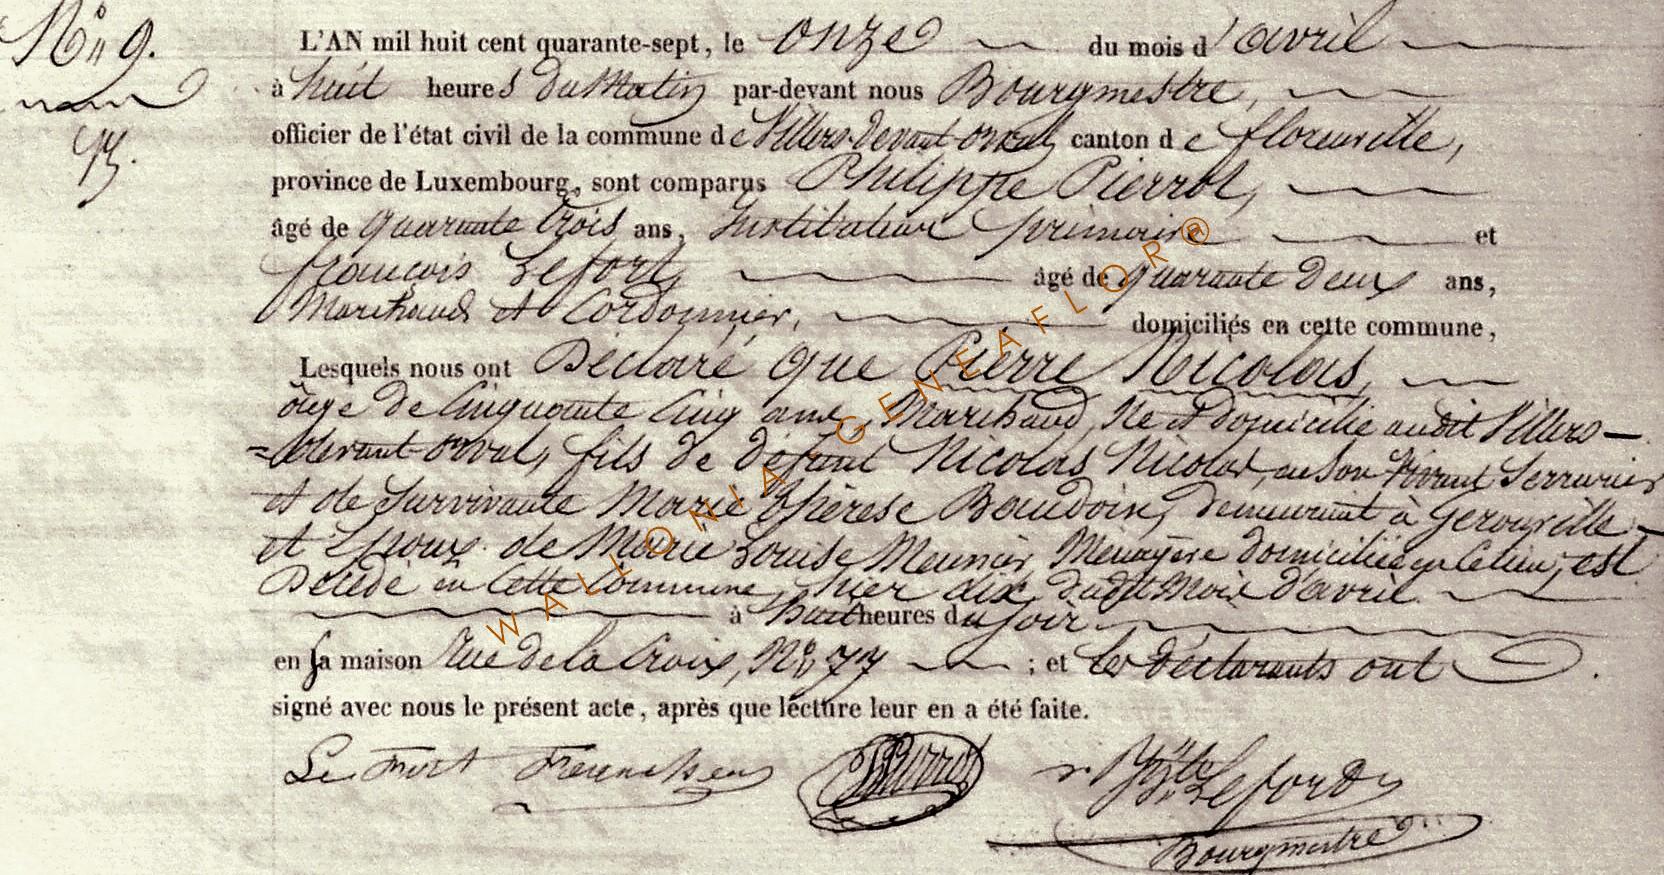 N° 9.
L'AN mil huit cent quarante-sept, le onze du mois d'avril
à huit heures du Matin par-devant nous Bourgmestre,
officier de l'état civil de la commune de Villers-devant-orval canton de florenville,
province de Luxembourg, sont comparus Philippe Pierrot,
âgé de quarante trois ans, Instituteur primaire et
françois Lefort, âgé de quarante deux ans,
Marchand et Cordonnier, domiciliés en cette commune,
Lesquels nous ont Déclaré que Pierre Nicolas,
âgé de Cinquante Cinq ans, Marchand, Né et domicilié audit Villers-
=devant-orval, fils de défunt Nicolas Nicolas, en son vivant Serrurier
et de survivante Marie Thérèse Baudoin, demeurant à Gerouville
et Epoux de Marie Louise Meunier, Ménagère domiciliée en ce lieu, est
Décédé en Cette Commune, hier dix dudit Mois d'avril
à huit heures du soir
en sa maison Rue de la Croix, N° 77 ; et les déclarants ont
signé avec nous le présent acte, après que lecture leur en a été faite.
Le Fort Pierrot Lefort
Bourgmestre
WALLONIA - GENEAFLOR®